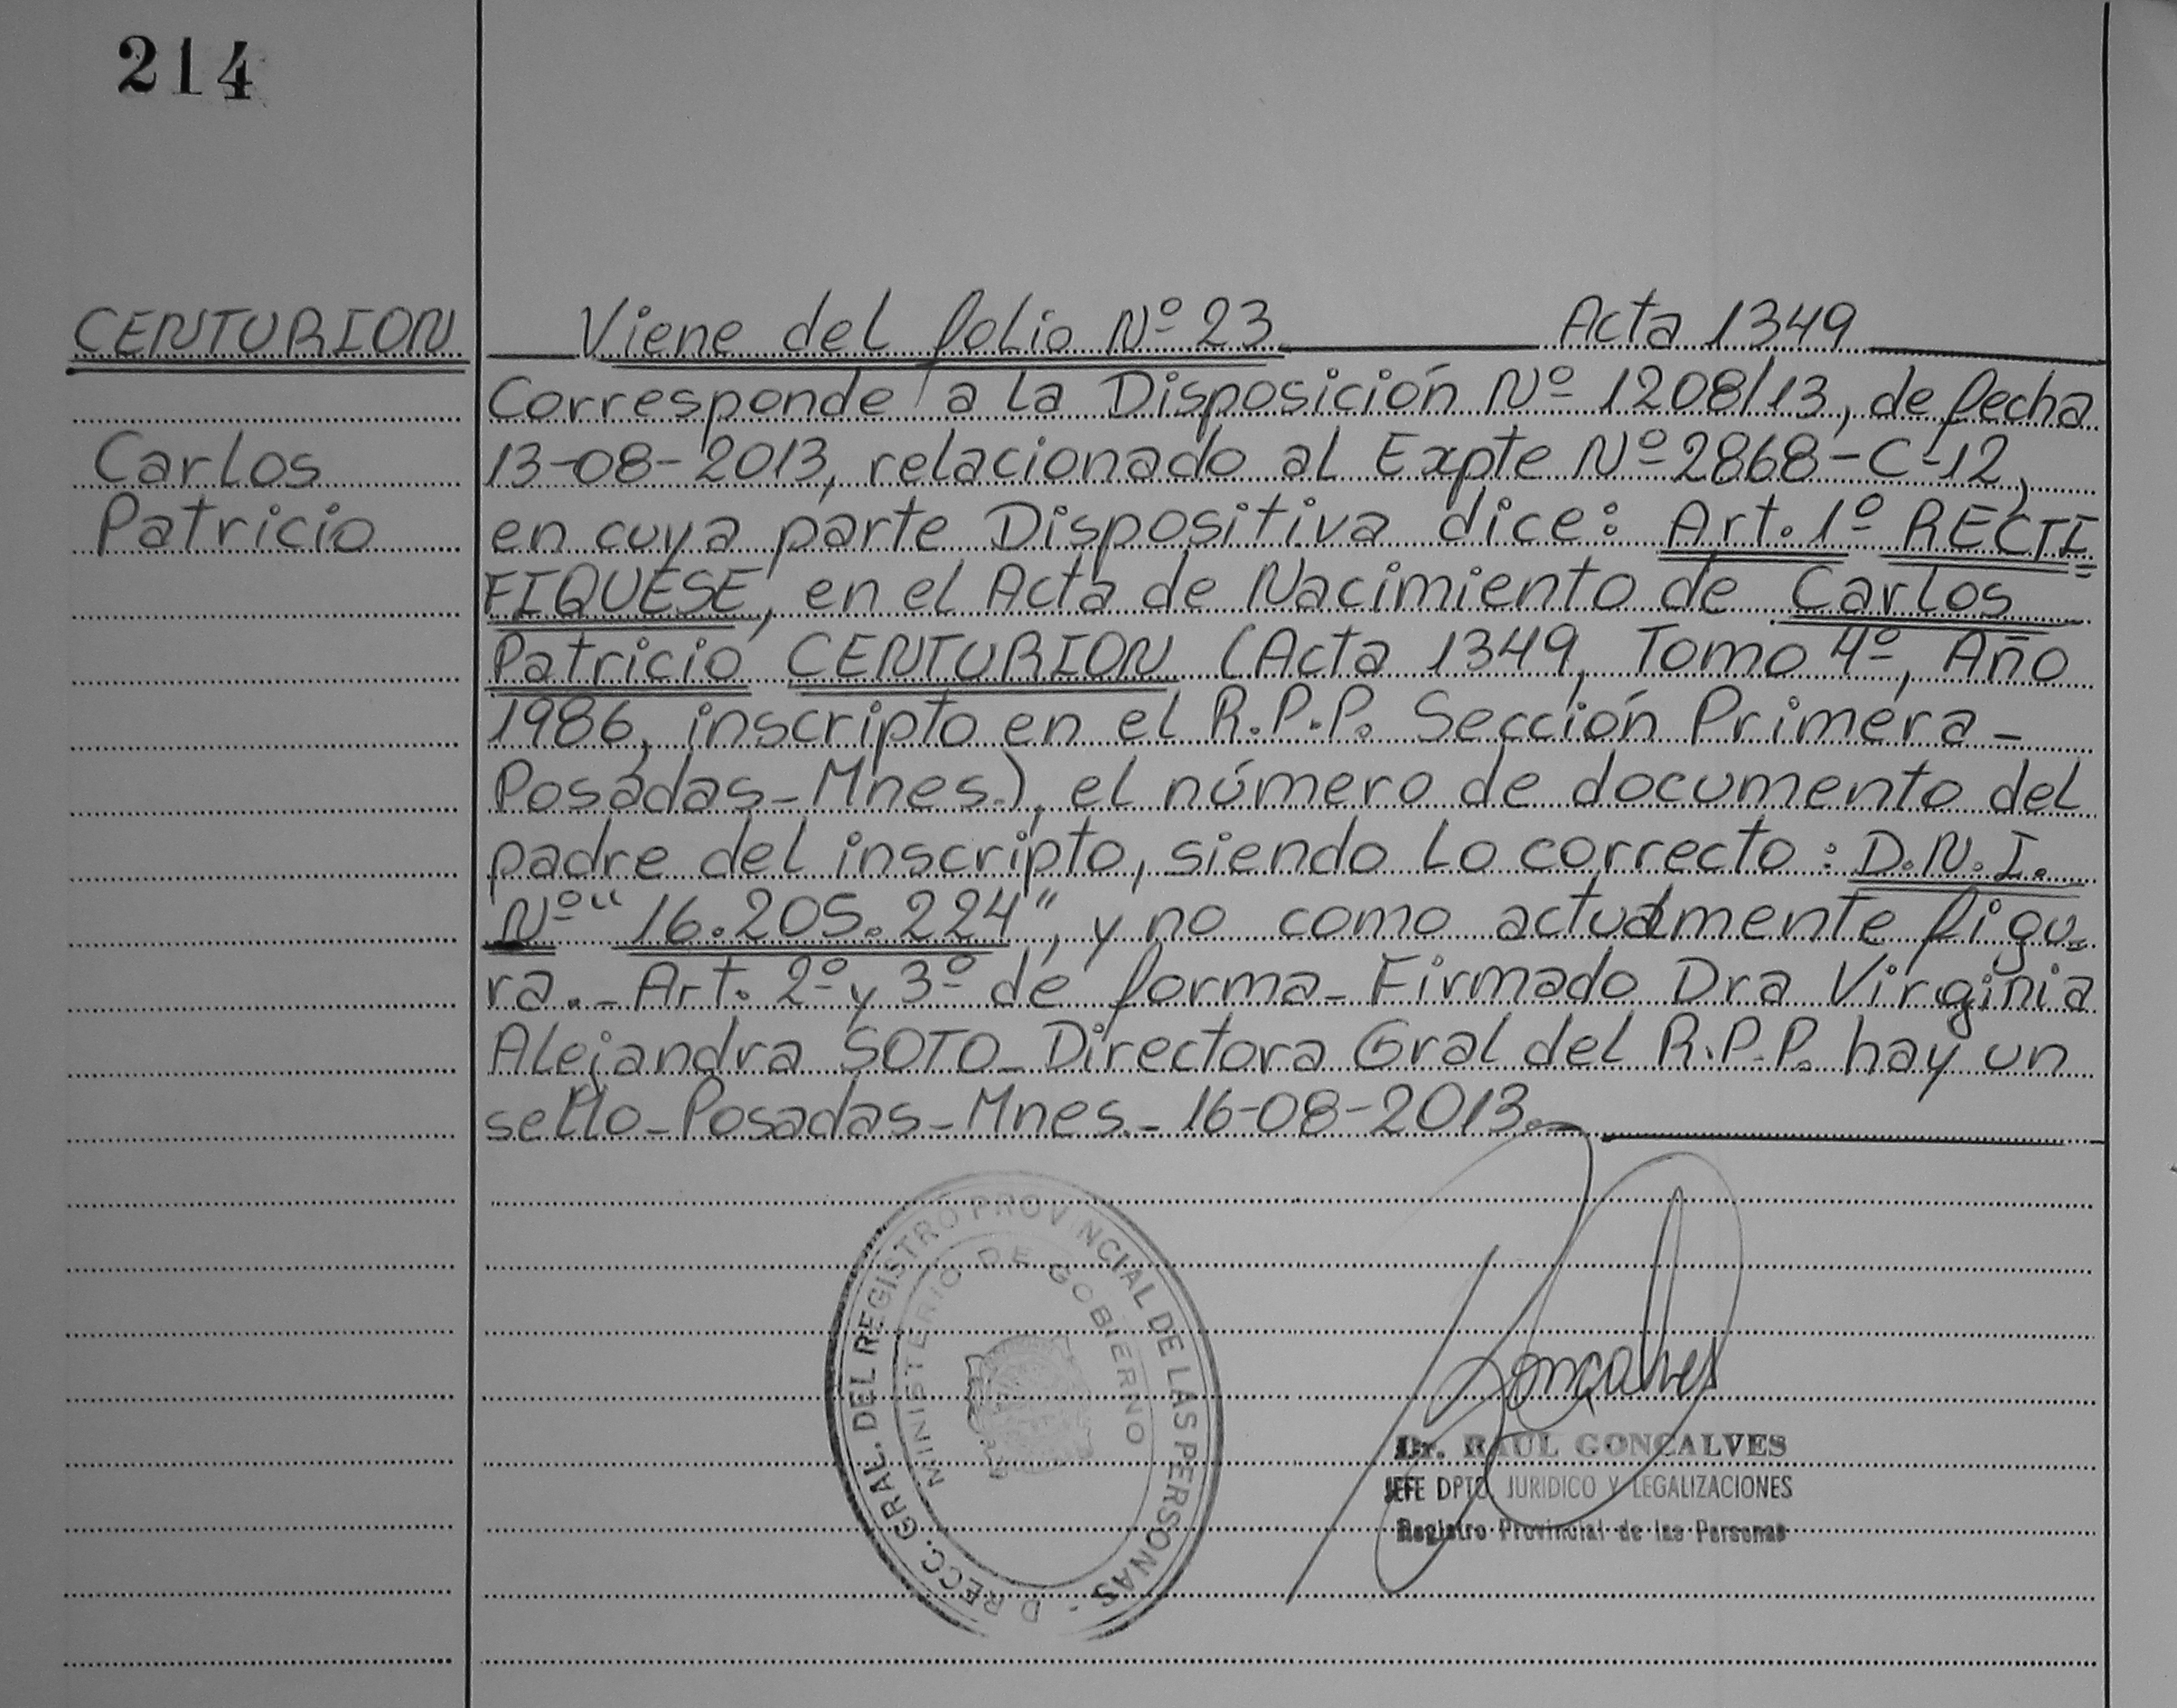 214
CENTURION
Carlos
Patricio
Viene del folio Nº 23 Acta 1349
Corresponde a la Disposición Nº 1208/13, de fecha
13-08-2013, relacionado al Expte Nº 2868-C-12,
en cuya parte Dispositiva dice: Art. 1º RECTI
FIQUESE, en el Acta de Nacimiento de Carlos
Patricio CENTURION (Acta 1349, Tomo 4º, Año
1986, inscripto en el R.P.P. Sección Primera-
Posadas-Mnes.), el número de documento del
padre del inscripto, siendo lo correcto: D.N.I.
Nº "16.205.224", y no como actualmente figu=
ra.- Art. 2º y 3º de forma- Firmado Dra Virginia
Alejandra SOTO- Directora Gral del R.P.P. hay un
sello-Posadas-Mnes.-16-08-2013.-
DIRECC. GRAL. DEL REGISTRO PROVINCIAL DE LAS PERSONAS -
MINISTERIO DE GOBIERNO
Goncalves
Dr. RAUL GONCALVES
JEFE DPTO JURIDICO Y LEGALIZACIONES
Registro Provincial de las Personas